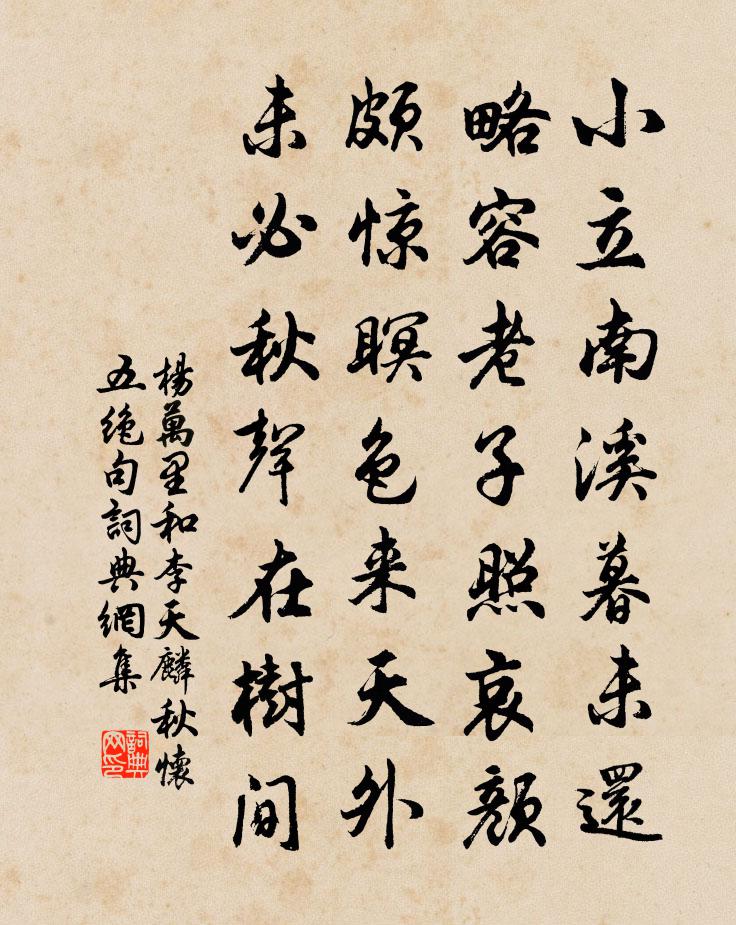 小立南溪暮未還
略容老子照哀顔
頗惊瞑色来天外
未必秋聲在樹間
楊萬里和李天麟秋懷
五絶句詞典網集
詞典网印